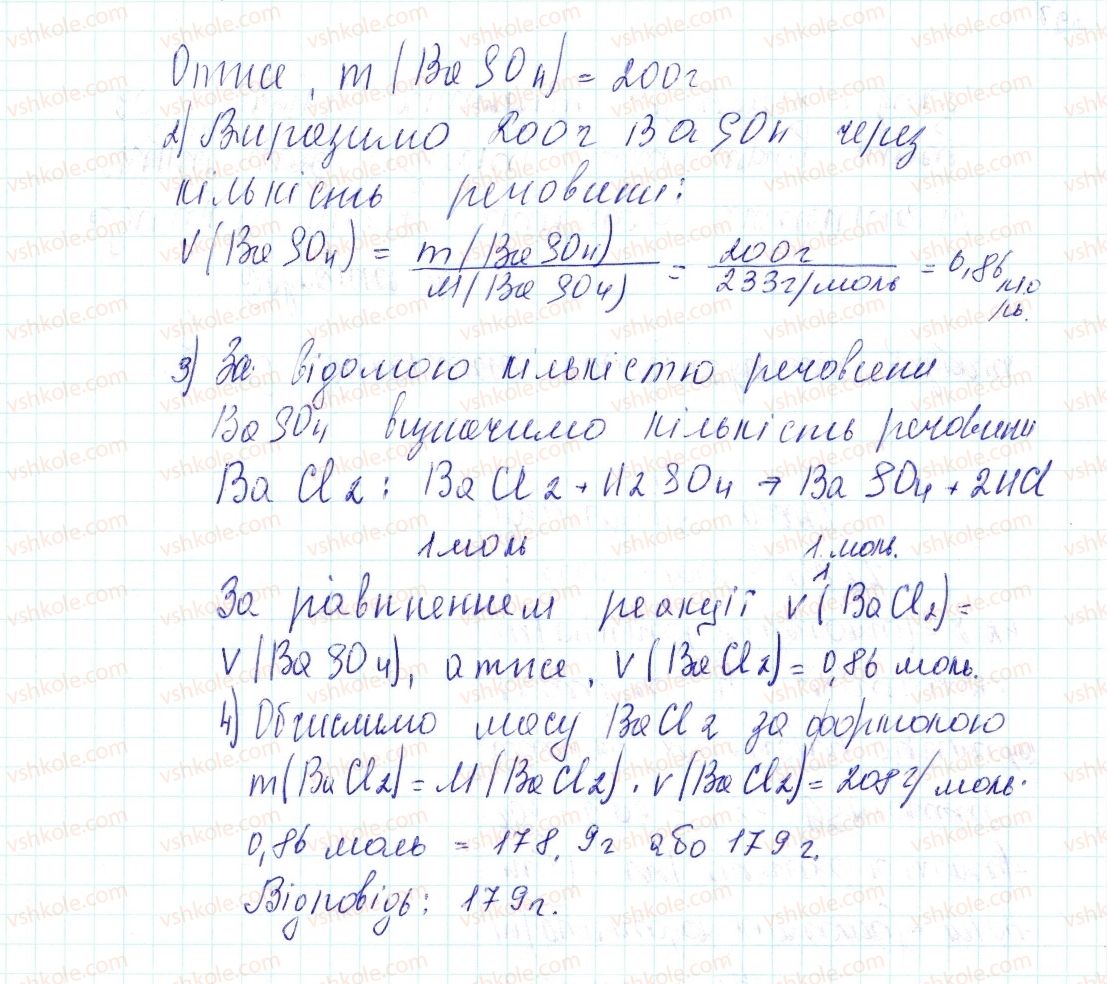 Отже, m(BaSO4) = 200г
2) Виразимо 200г BaSO4 через
кількість речовини:
ν(BaSO4) = m(BaSO4) / M(BaSO4) = 200г / 233г/моль = 0,86 моль.
3) За відомою кількістю речовини
BaSO4 визначимо кількість речовини
BaCl2: BaCl2 + H2SO4 → BaSO4 + 2HCl
1 моль 1 моль.
За рівнянням реакції ν(BaCl2) =
ν(BaSO4), отже, ν(BaCl2) = 0,86 моль.
4) Обчислимо масу BaCl2 за формулою
m(BaCl2) = M(BaCl2) · ν(BaCl2) = 208г/моль ·
0,86 моль = 178,9г або 179г.
Відповідь: 179г.
vshkole.com